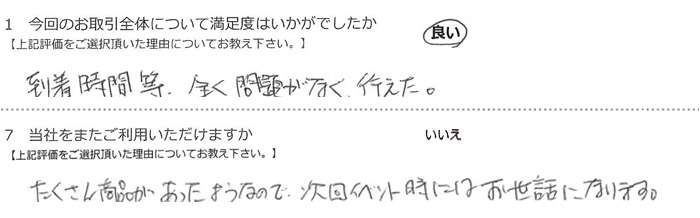 1 今回のお取引全体について満足度はいかがでしたか 良い
【上記評価をご選択頂いた理由についてお教え下さい。】
到着時間等、全く問題がなく、行えた。
7 当社をまたご利用いただけますか いいえ
【上記評価をご選択頂いた理由についてお教え下さい。】
たくさん商品があったようなので、次回イベント時にはお世話になります。